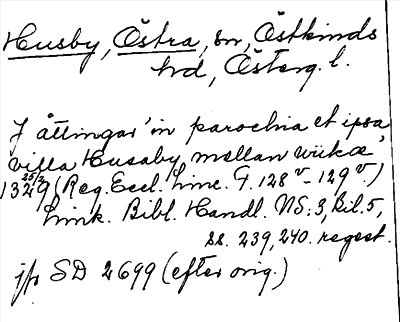 Husby, Östra, sn, Östkinds
hd, Österg. l.
7 åttingar "in parochia et ipsa
villa Husaby mellan wikæ"
1329 25/2 (Reg. Eccl. Linc. F. 128v–129v)
Link. Bibl. Handl. NS: 3, bil. 5,
ss. 239, 240. regest.
jfr SD 2699 (efter orig.)